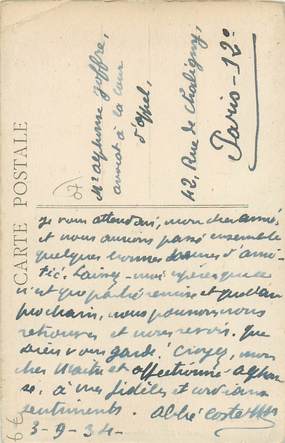 CARTE POSTALE
Mr Alphonse Joffre,
avocat à la cour
d'appel,
42, Rue de Chaligny,
Paris - 12e
Je vous attendais, mon cher ami,
et nous aurions passé ensemble
quelques bonnes heures d'ami-
tié. Laissez-moi espérer que ce
n'est que partie remise et que l'an
prochain, nous pourrons nous
retrouver et nous revoir. Que
Dieu vous garde! Croyez, mon
cher Maître et affectionné Alphon-
se, à mes fidèles et cordiaux
sentiments. Abbé Coste
3-9-34-
6 €